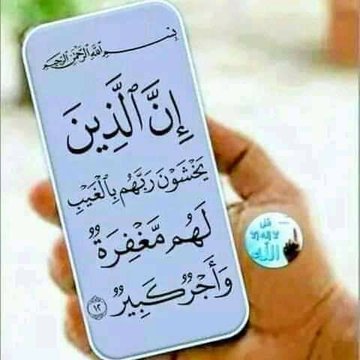 بِسْمِ ٱللَّهِ ٱلرَّحْمَٰنِ ٱلرَّحِيمِ
إِنَّ ٱلَّذِينَ
يَخْشَوْنَ رَبَّهُم بِٱلْغَيْبِ
لَهُم مَّغْفِرَةٌ
وَأَجْرٌ كَبِيرٌ ١٢
قل
لا إله إلا
الله